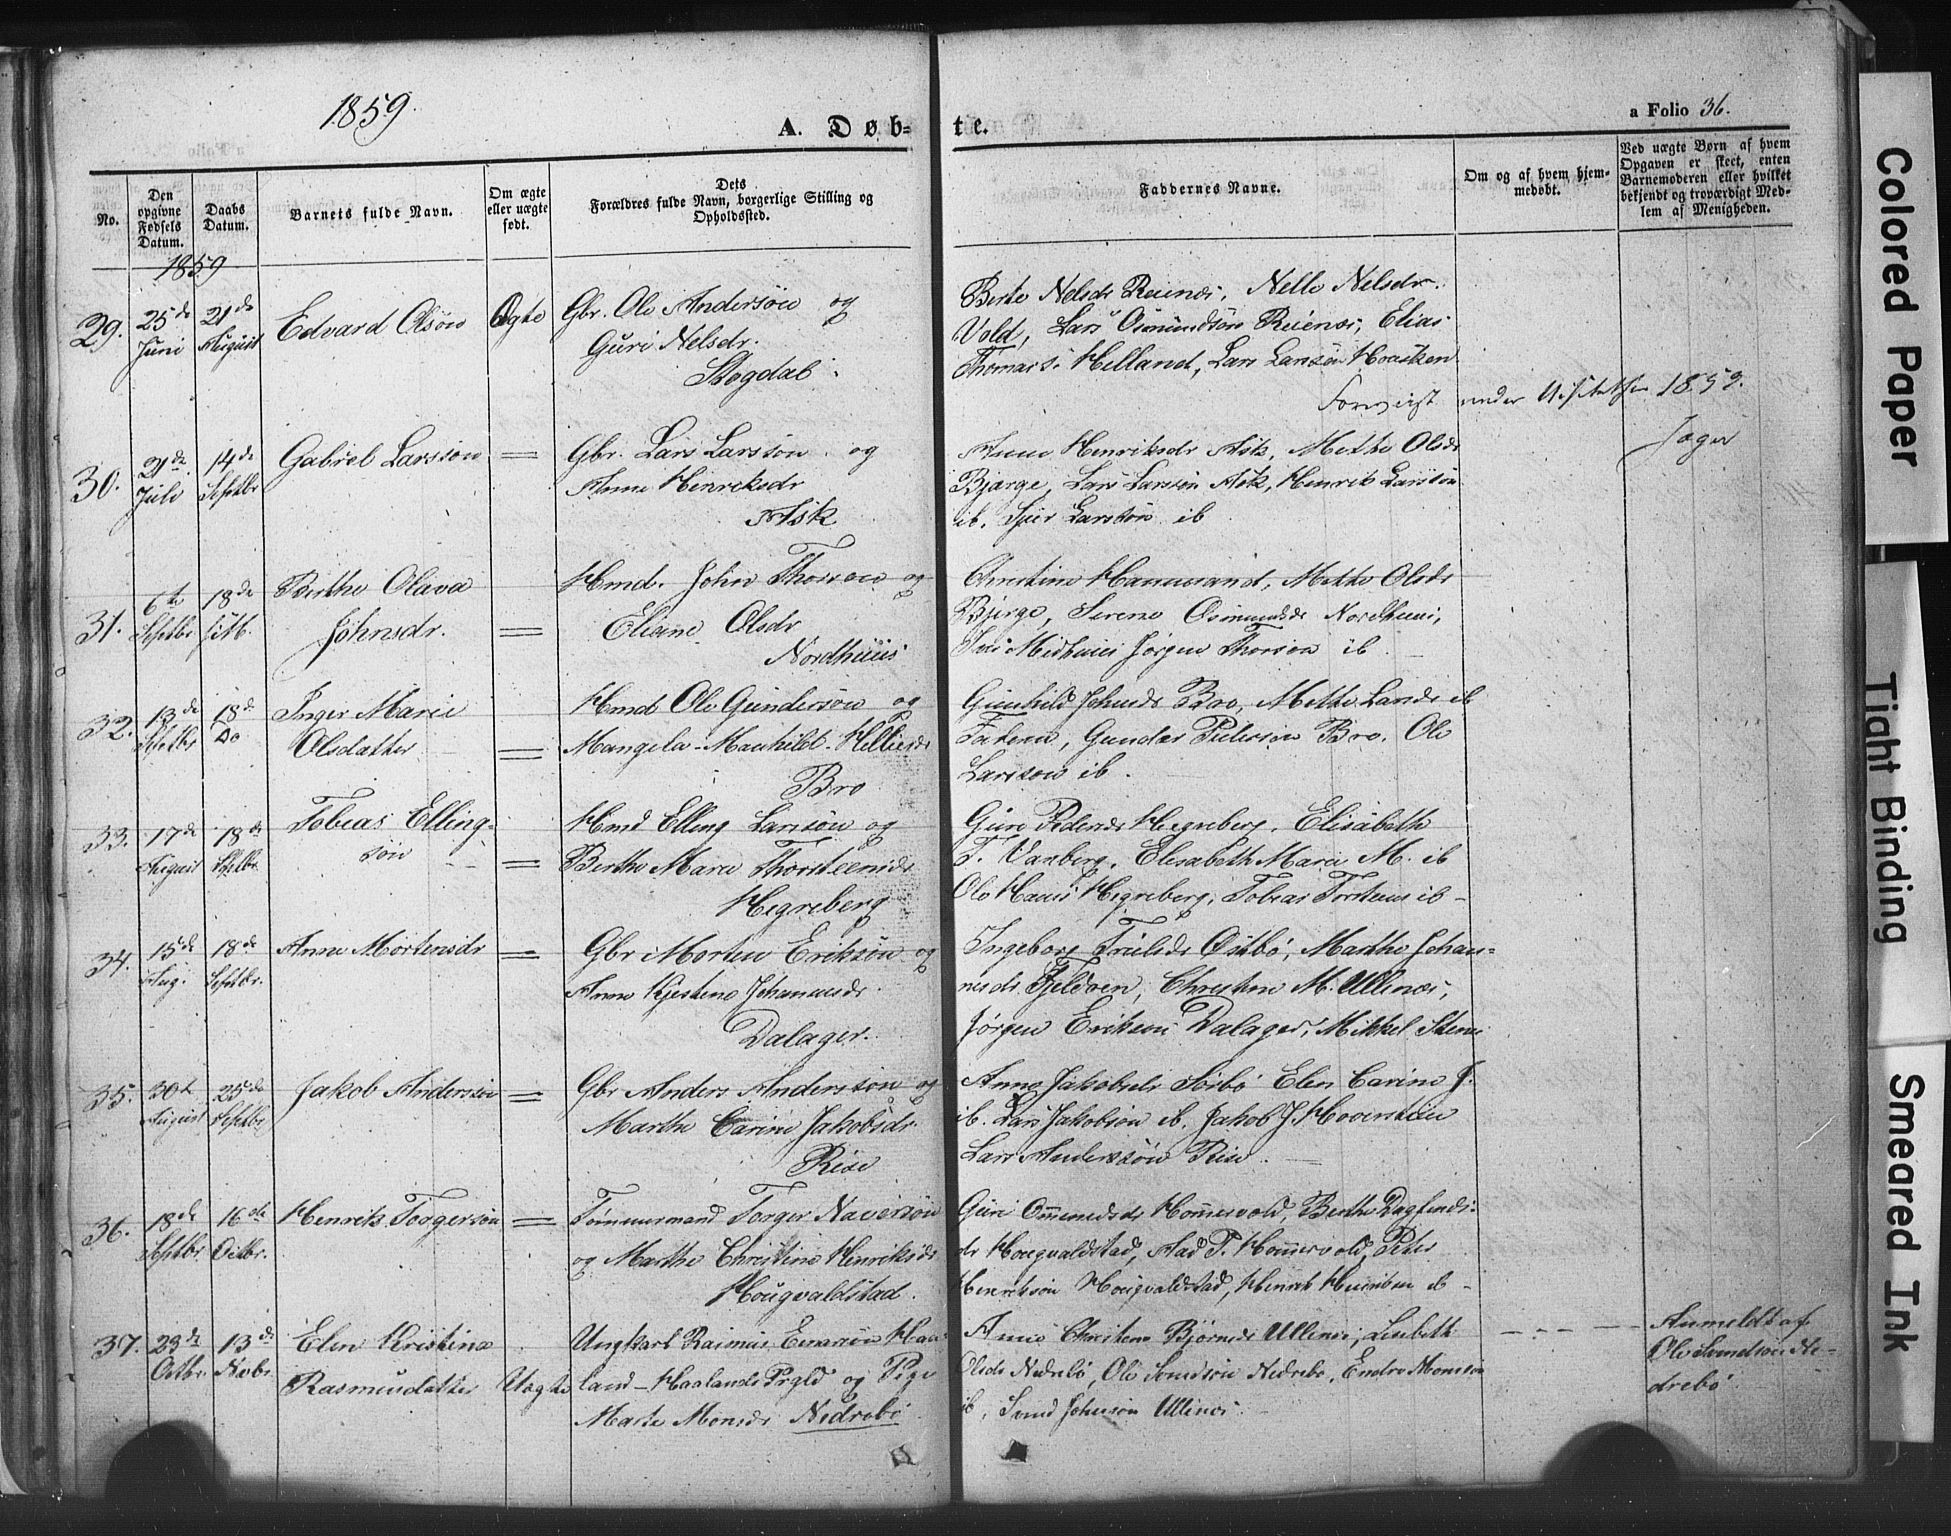 1859.
A. Døb-
te.
a Folio 36.
No.
Den opgivne Fødsels Datum.
Daabs Datum.
Barnets fulde Navn.
Om ægte eller uægte født.
Dets Forældres fulde Navn, borgerlige Stilling og Opholdssted.
Faddernes Navne.
Om og af hvem hjemmedøbt.
Ved uægte Børn af hvem
Opgaven er skeet, enten
Barnemoderen eller hvilket
bekjendt og troværdigt Med-
lem af Menigheden.
1859
29. 25de Juni 21de August Edvard Olsøn Ægte Gbr. Ole Andersøn og
Guri Nelsdr.
Berte Nelsdr Reienæs, Nelle Nelsdr.
Vold, Lars Osmundsøn Reienæs, Elias
Thomas: Helland, Lars Larsøn
1859.
30. 21de Juli 14de Septbr Gabriel Larssøn = Gbr. Lars Larssøn og
Anne Henreksdr
Ask
Anne Henriksdr Ask, Methe Olsdr
Bjørge, Lars Larssøn Ask, Henrik Larssøn
ib. Larssøn ib
31. 6te Septbr 18de Berthe Olava
Johnsdr. = Hmd. John Thorsøn og
Eliane Olsdr
Nordhuus
Mette Olsdr
Bjørge, Serene Osmundsdr Nordhuus,
Jørgen Thorsøn ib
32. 13de Septbr 18de Do Inger Marie
Olsdatter = Hmd Ole Gundersøn og
Mangela-Mauhildt
Bro
Gunhild Johnsdr Bro, Methe Larsdr ib
Gunder Pedersøn Bro. Ole
Larssøn ib.
33. 17de August 18de Septbr Tobias Elling-
søn = Hmd Elling Larssøn og
Berthe Marie Thorsteensdr
Hegreberg
Guro Pedersdr Hegreberg, Elisabeth
T. Vanberg, Elisabeth Marie M. ib
Ole Hegreberg, Tobias ib-
34. 15de Aug. 18de Septbr. Anne Mortensdr = Gbr Morten Eriksøn og
Anne Kjestene Johannesdr.
Dalager.
Ingeborg Trulsdr Østbø, Marthe Johan-
nesdr Fjeldøen, Christine M. Ullenæs,
Jørgen Eriksøn Dalager, Mikkel
35. 30te August 25de Septbr Jakob Anderssøn = Gbr Anders Anderssøn og
Marthe Carine Jakobsdr.
Rise
Anne Jakobsdr Sørbø Elen Carine J.
ib. Lars Jakobsøn ib. Jakob J.
Lars Anderssøn Rise
36. 18de Septbr 16de Octbr. Henrik Torgersøn = Tømmermand Torger
og Marthe Christine Henriksdr
Hougvaldstad.
Guri Ommundsdr Hommersvold, Berthe Dagfinds-
dr Hougvaldstad, P. Hommersvold, Peter
Henriksøn Hougvaldstad, Henrik Henriksøn ib-
37. 23de Octbr. 13de Novbr Elen Kristina
Rasmusdatter Uægte Ungkarl Rasmus Haa-
land - Haalands Prgld og Pige
Marte Monsdr Nedrebø
Christene Bjørnsdr Ullenæs, Lisebeth
Olsdr Nedrebø, Ole Svendsøn Nedrebø, Endre Monsøn
ib, Svend Johnsøn Ullenæs.
Anmeldt af
Ole Svendsøn Ne-
drebø
Colored Paper
Tight Binding
Smeared Ink